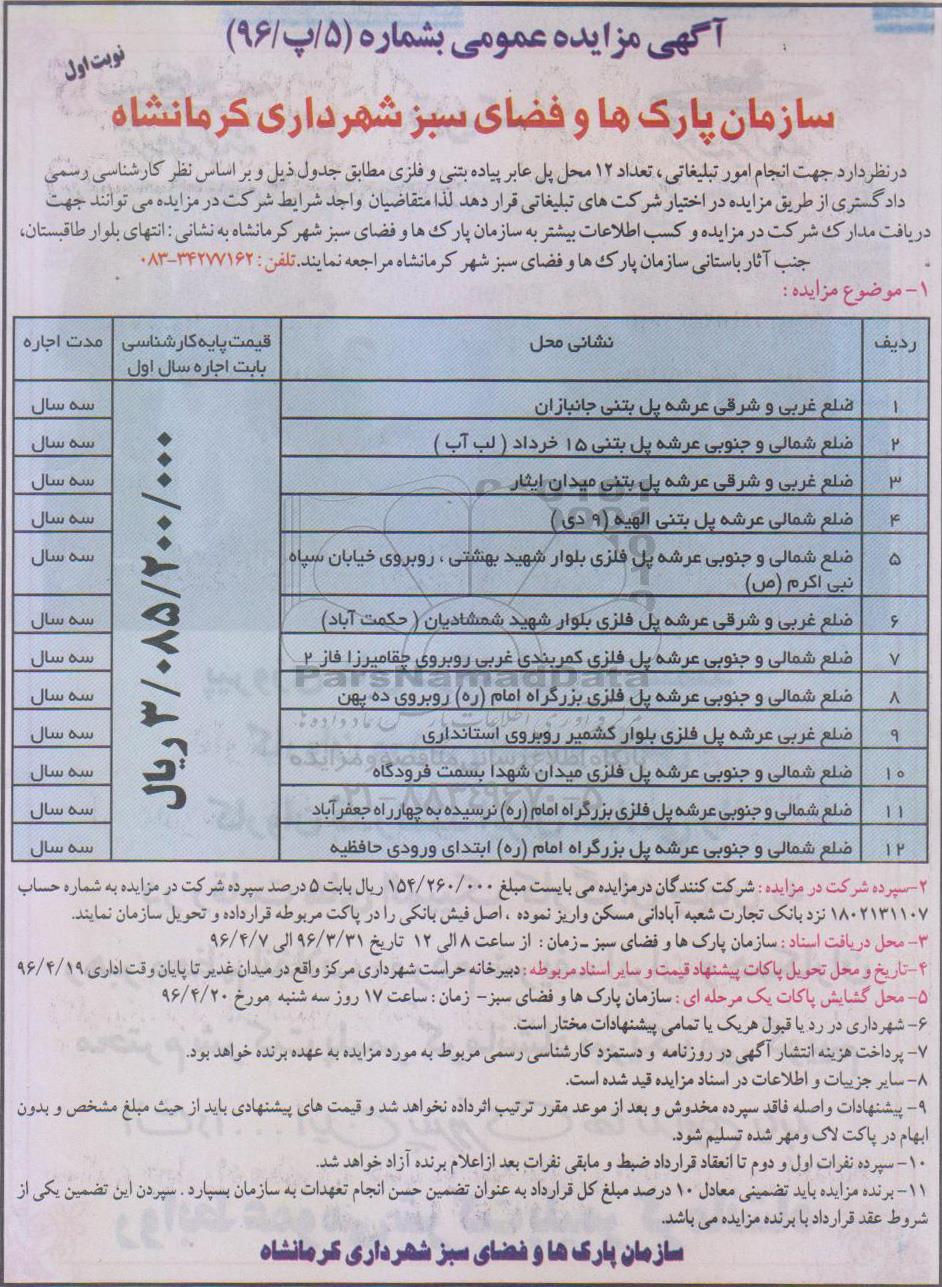 آگهی مزایده عمومی بشماره (۵/پ/۹۶)
نوبت اول
سازمان پارک ها و فضای سبز شهرداری کرمانشاه
درنظردارد جهت انجام امور تبلیغاتی ، تعداد ۱۲ محل پل عابر پیاده بتنی و فلزی مطابق جدول ذیل و بر اساس نظر کارشناسی رسمی
دادگستری از طریق مزایده در اختیار شرکت های تبلیغاتی قرار دهد لذا متقاضیان واجد شرایط شرکت در مزایده می توانند جهت
دریافت مدارک شرکت در مزایده و کسب اطلاعات بیشتر به سازمان پارک ها و فضای سبز شهر کرمانشاه به نشانی : انتهای بلوار طاقبستان،
جنب آثار باستانی سازمان پارک ها و فضای سبز شهر کرمانشاه مراجعه نمایند. تلفن : ۳۴۲۷۷۱۶۲-۰۸۳
۱- موضوع مزایده :
ردیف نشانی محل قیمت پایه کارشناسی مدت اجاره
بابت اجاره سال اول
۱ ضلع غربی و شرقی عرشه پل بتنی جانبازان سه سال
۲ ضلع شمالی و جنوبی عرشه پل بتنی ۱۵ خرداد ( لب آب ) سه سال
۳ ضلع غربی و شرقی عرشه پل بتنی میدان ایثار سه سال
۴ ضلع شمالی عرشه پل بتنی الهیه (۹ دی ) سه سال
۵ ضلع شمالی و جنوبی عرشه پل فلزی بلوار شهید بهشتی ، روبروی خیابان سپاه سه سال
نبی اکرم (ص)
۶ ضلع غربی و شرقی عرشه پل فلزی بلوار شهید شمشادیان ( حکمت آباد) سه سال
۷ ضلع شمالی و جنوبی عرشه پل فلزی کمربندی غربی روبروی چقامیرزا فاز ۲ سه سال
۸ ضلع شمالی و جنوبی عرشه پل فلزی بزرگراه امام (ره) روبروی ده پهن سه سال
۹ ضلع غربی عرشه پل فلزی بلوار کشمیر روبروی استانداری سه سال
۱۰ ضلع شمالی و جنوبی عرشه پل فلزی میدان شهدا بسمت فرودگاه سه سال
۱۱ ضلع شمالی و جنوبی عرشه پل فلزی بزرگراه امام (ره) نرسیده به چهارراه جعفرآباد سه سال
۱۲ ضلع شمالی و جنوبی عرشه پل بزرگراه امام (ره) ابتدای ورودی حافظیه سه سال
۳/۰۸۵/۲۰۰/۰۰۰ ریال
ParsNamadData
۲-سپرده شرکت در مزایده : شرکت کنندگان درمزایده می بایست مبلغ ۱۵۴/۲۶۰/۰۰۰ ریال بابت ۵ درصد سپرده شرکت در مزایده به شماره حساب
۱۸۰۲۱۳۱۱۰۷ نزد بانک تجارت شعبه آبادانی مسکن واریز نموده ، اصل فیش بانکی را در پاکت مربوطه قرارداده و تحویل سازمان نمایند.
۳- محل دریافت اسناد : سازمان پارک ها و فضای سبز – زمان : از ساعت ۸ الی ۱۲ تاریخ ۹۶/۳/۳۱ الی ۹۶/۴/۷
۴-تاریخ و محل تحویل پاکات پیشنهاد قیمت و سایر اسناد مربوطه : دبیرخانه حراست شهرداری مرکز واقع در میدان غدیر تا پایان وقت اداری ۹۶/۴/۱۹
۵- محل گشایش پاکات یک مرحله ای : سازمان پارک ها و فضای سبز- زمان : ساعت ۱۷ روز سه شنبه مورخ ۹۶/۴/۲۰
۶- شهرداری در رد یا قبول هریک یا تمامی پیشنهادات مختار است.
۷- پرداخت هزینه انتشار آگهی در روزنامه و دستمزد کارشناسی رسمی مربوط به مورد مزایده به عهده برنده خواهد بود.
۸- سایر جزییات و اطلاعات در اسناد مزایده قید شده است.
۹- پیشنهادات واصله فاقد سپرده مخدوش و بعد از موعد مقرر ترتیب اثرداده نخواهد شد و قیمت های پیشنهادی باید از حیث مبلغ مشخص و بدون
ابهام در پاکت لاک ومهر شده تسلیم شود.
۱۰- سپرده نفرات اول و دوم تا انعقاد قرارداد ضبط و مابقی نفرات بعد ازاعلام برنده آزاد خواهد شد.
۱۱- برنده مزایده باید تضمینی معادل ۱۰ درصد مبلغ کل قرارداد به عنوان تضمین حسن انجام تعهدات به سازمان بسپارد . سپردن این تضمین یکی از
شروط عقد قرارداد با برنده مزایده می باشد.
سازمان پارک ها و فضای سبز شهرداری کرمانشاه